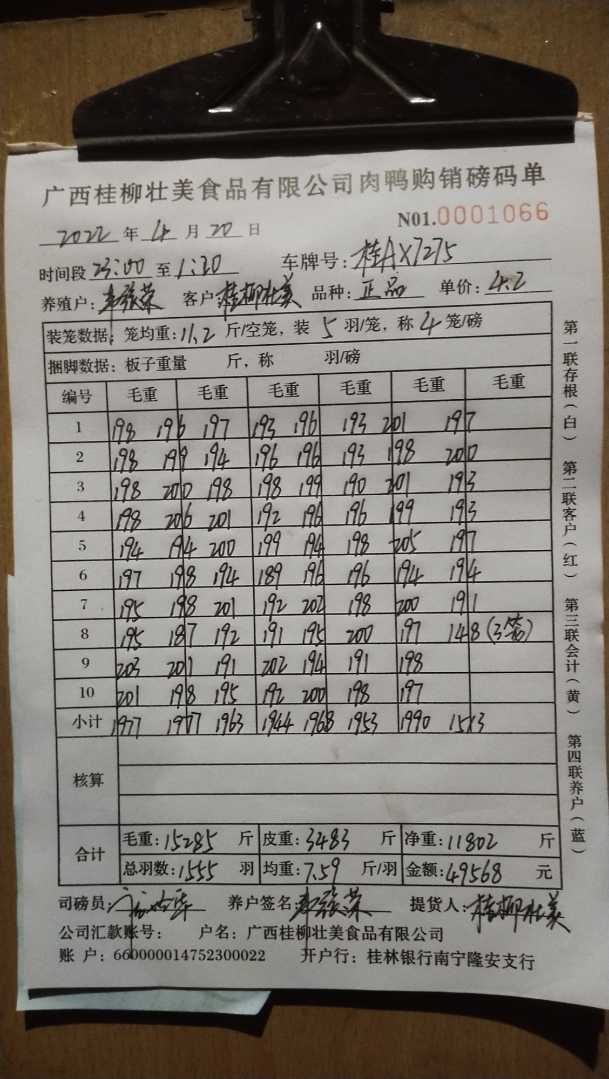 广西桂柳壮美食品有限公司肉鸭购销磅码单
2022 年 4 月 20 日 N01.0001066
时间段 23:00 至 1:30 车牌号: 桂AX7275
养殖户: 客户: 桂柳壮美 品种: 正品 单价: 4.2
装笼数据: 笼均重: 11.2 斤/空笼, 装 5 羽/笼, 称 4 笼/磅
捆脚数据: 板子重量 斤, 称 羽/磅
编号 毛重 毛重 毛重 毛重 毛重 毛重
1 198 196 197 193 196 193 201 197
2 198 199 194 196 196 193 198 200
3 198 200 198 198 199 190 201 193
4 198 206 201 192 196 196 199 193
5 194 194 200 199 194 198 205 197
6 197 198 194 189 196 196 194 194
7 195 198 201 192 202 198 200 191
8 195 187 192 191 195 200 197 148 (3笼)
9 203 201 191 202 194 191 198
10 201 198 195 192 200 198 197
小计 1977 1977 1963 1944 1968 1953 1990 1513
核算
合计 毛重: 15285 斤 皮重: 3483 斤 净重: 11802 斤
总羽数: 1555 羽 均重: 7.59 斤/羽 金额: 49568 元
司磅员: 养户签名: 提货人: 桂柳壮美
公司汇款账号: 户名: 广西桂柳壮美食品有限公司
账 户: 660000014752300022 开户行: 桂林银行南宁隆安支行
第一联存根(白) 第二联客户(红) 第三联会计(黄) 第四联养户(蓝)